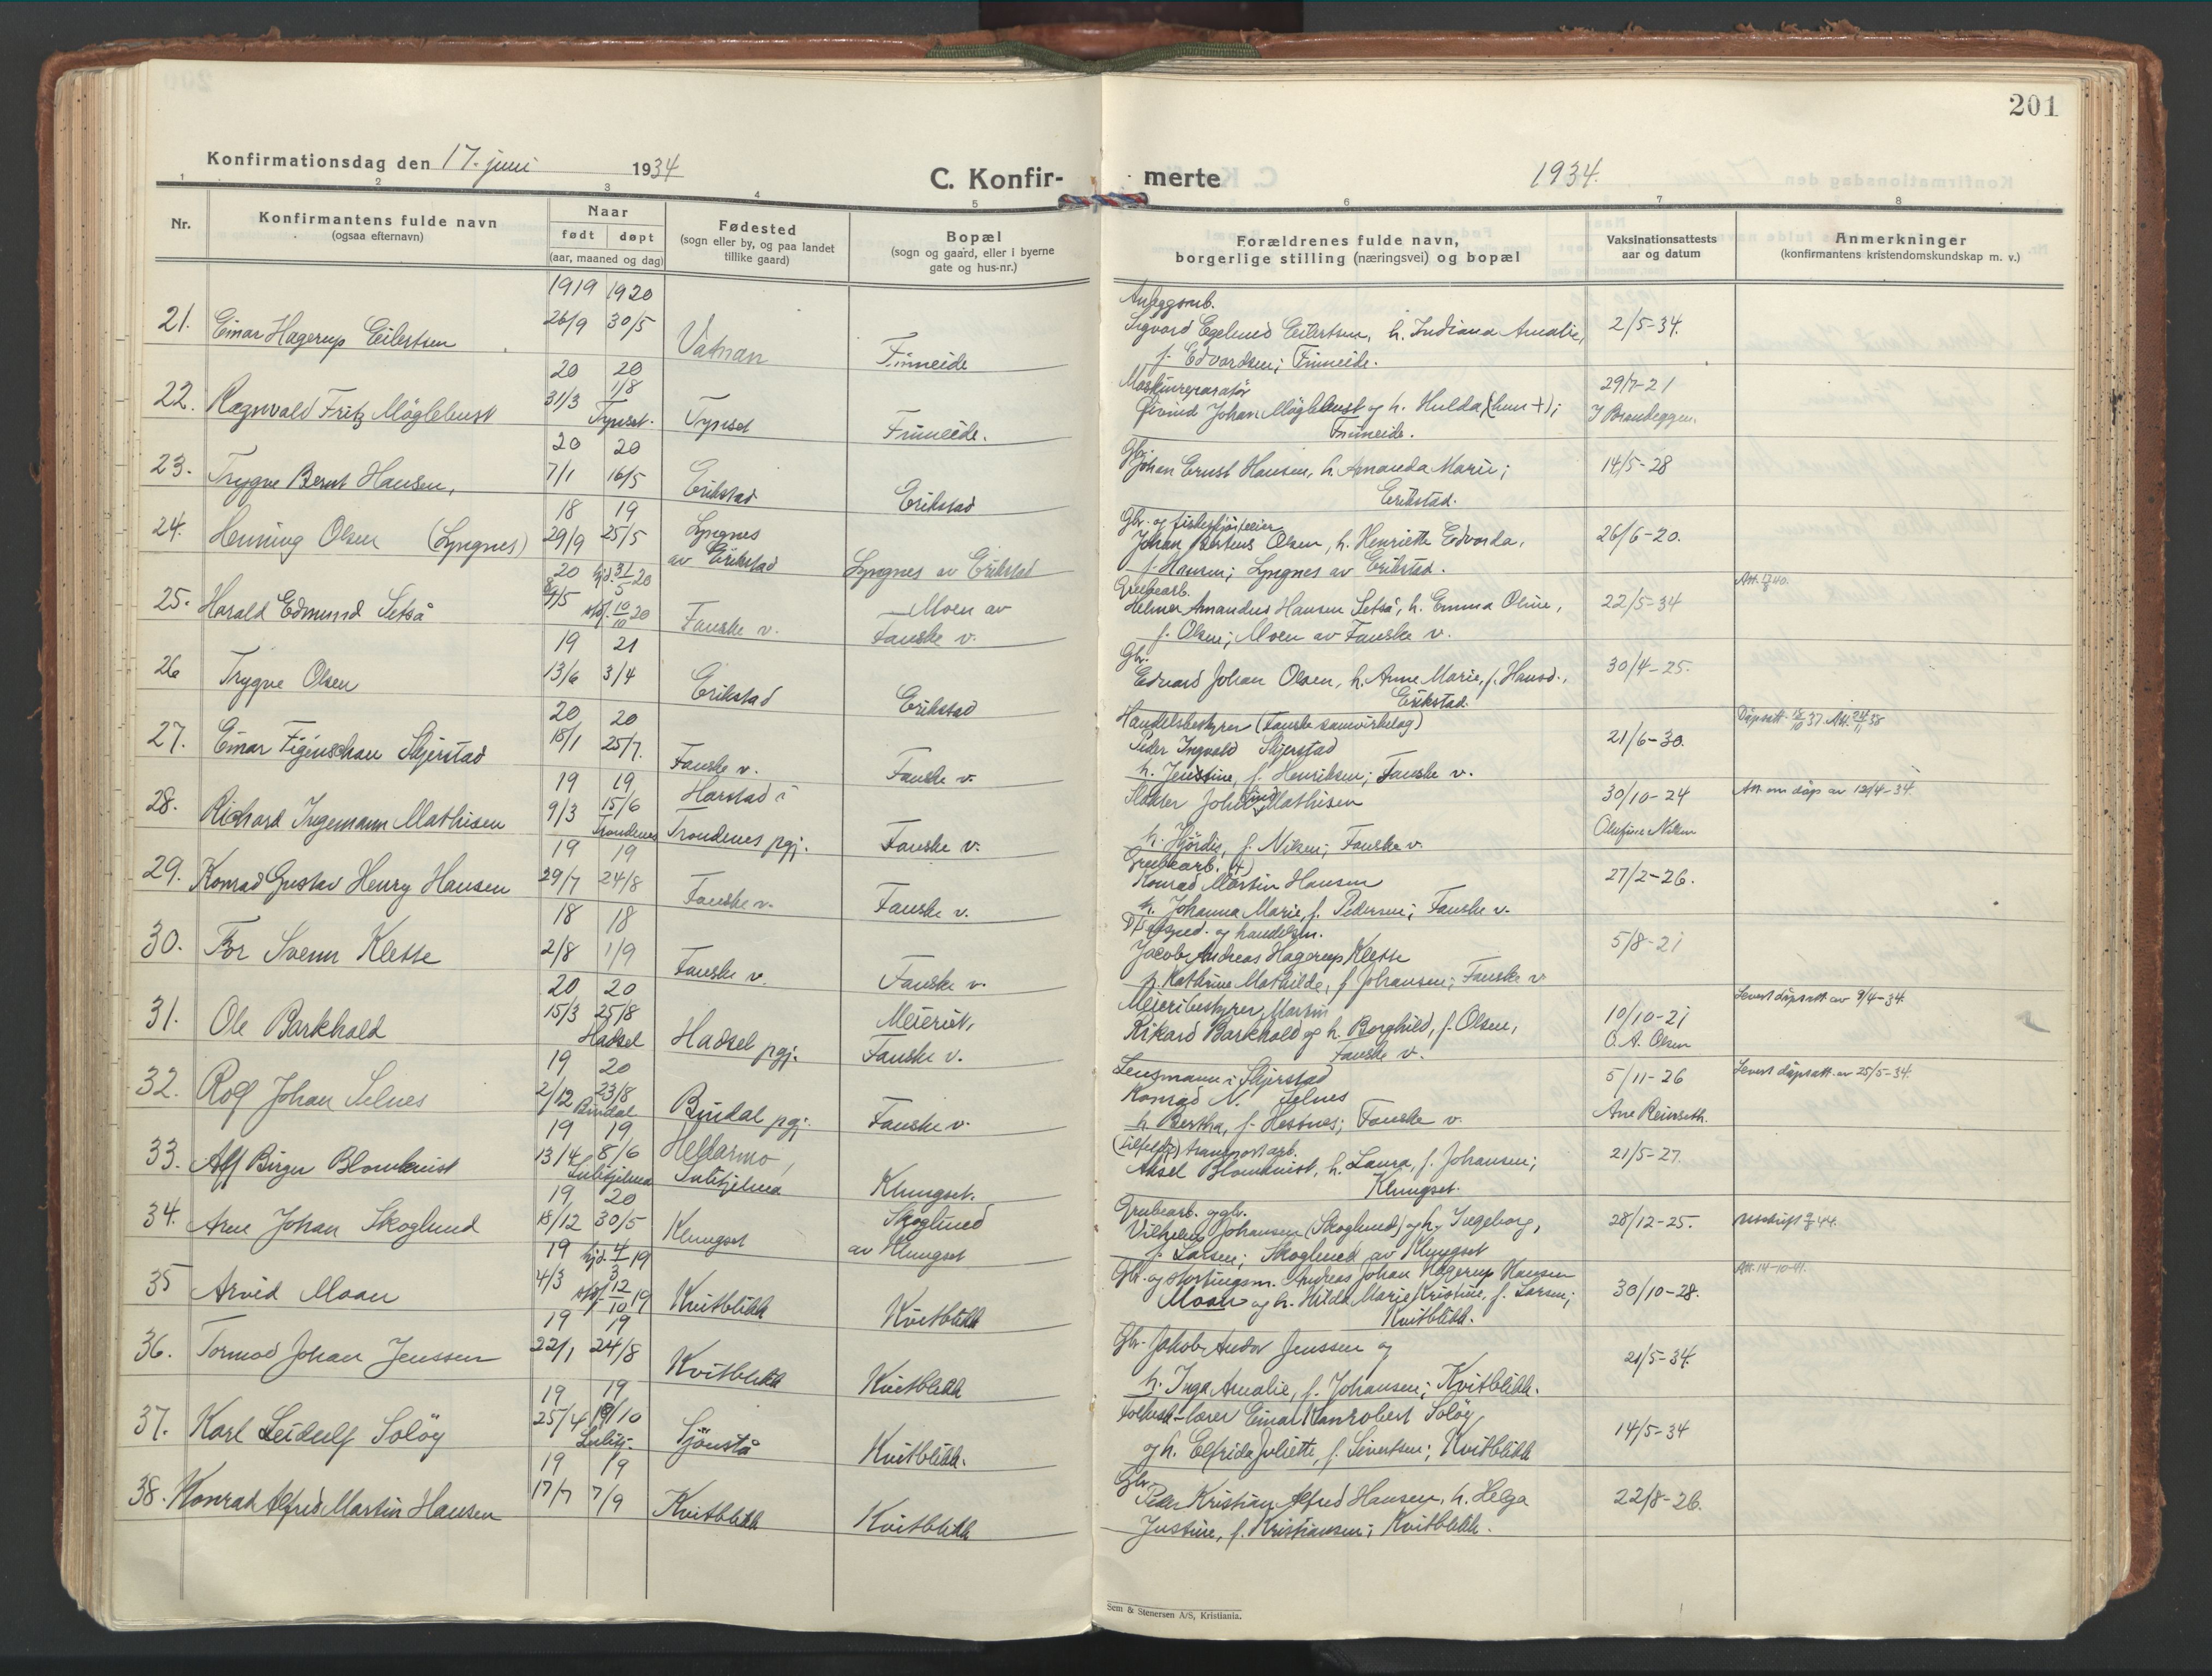 201
Konfirmationsdag den 17. juni 1934
C. Konfir-merte
1934.
1 2 3 4 5 6 7 8
Nr.
Konfirmantens fulde navn
(ogsaa efternavn)
Naar
født døpt
(aar, maaned og dag)
Fødested
(sogn eller by, og paa landet
tillike gaard)
Bopæl
(sogn og gaard, eller i byerne
gate og hus-nr.)
Forældrenes fulde navn,
borgerlige stilling (næringsvei) og bopæl
Vaksinationsattests
aar og datum
Anmerkninger
(konfirmantens kristendomskundskap m. v.)
1919 1920
21. Einar Hagerup Eilertsen 26/9 30/5 Vatnan Finneide
Anleggsarb.
Sigvard Egelund Eilertsen, h. Indiana Amalie, 2/5-34.
f. Edvardsen; Finneide.
20 20
22. Ragnvald Fritz Möglebust 31/3 1/8 Tynset. Tynset Finneide.
Maskinreparatör
Öivind Johan Möglebust og h. Hulda, (hun +); 29/7-21
Finneide. J Brandeggen.
20 20
23. Trygve Bernt Hansen, 7/1 16/5 Erikstad Erikstad
Gbr.
Johan Ernst Hansen, h. Amanda Marie; 14/5-28
Erikstad.
18 19
24. Henning Olsen (Lyngnes) 29/9 25/5 Lyngnes
av Erikstad Lyngnes av Erikstad
Gbr. og
Johan Olsen, h. Henriette Edvarda, 26/6-20.
f. Hansen; Lyngnes av Erikstad.
20 hjd. 31/5 20
25. Harald Edmund Setså /5 stdf. 10/10 20 Fauske v. Moen av
Fauske v.
Grubearb.
Helmer Amandus Hansen Setså, h. Emma Oline, 22/5-34
f. Olsen; Moen av Fauske v.
19 21
26 Trygve Olsen 13/6 3/4 Erikstad Erikstad
Gbr.
Edvard Johan Olsen, h. Anne Marie, f. Hansd., 30/4-25.
Erikstad
20 20
27. Einar Figenschau Skjerstad 18/1 25/7. Fauske v. Fauske v.
Handelsbestyrer (Fauske samvirkelag)
Peder Ingvald Skjerstad 21/6-30.
h. Jenssine, f. Henriksen; Fauske v.
Dåpsatt. 37. Att. 38
19 19
28. Richard Ingemann Mathisen 9/3 15/6 Trondenes Harstad i
Trondenes pgj. Fauske v.
Slakter Johan Mathisen 30/10-24
h. Hjördis, f. Nilsen; Fauske v. Olufine Nilsen
Att. om dåp av 12/4-34.
19 19
29. Konrad Gustav Henry Hansen 29/7 24/8 Fauske v. Fauske v.
Grubearb. (+)
Konrad Martin Hansen 27/2-26.
h. Johanna Marie, f. Pedersen; Fauske v.
18 18
30. Tor Svenn Klette 2/8 1/9 Fauske v. Fauske v.
D/S eksped. og handelsm.
Jacob Andreas Hagerup Klette 5/8-21
h. Kathrine Mathilde, f. Johansen; Fauske v
20 20
31. Ole Barkhald 15/3 25/8 Hadsel Hadsel pgj. Meieriet,
Fauske v.
Meieribestyrer Martin
Rikard Barkhald og h. Borghild, f. Olsen, 10/10-21
Fauske v. O. A. Olsen
Levert dåpsatt. av 9/4-34.
19 20
32. Rolf Johan Selnes 2/12 23/8 Bindal Bindal pgj. Fauske v.
Lensmann i Skjerstad
Konrad N. Selnes 5/11-26
h. Bertha, f. Hestnes; Fauske v. Ane Reinseth.
Levert dåpsatt. av 25/5-34.
19 19
33. Alf Birger Blomkvist 13/4 8/6 Sulitjelma Hellarmo,
Sulitjelma Klungset.
transportarb.
Aksel Blomkvist, h. Laura, f. Johansen; 21/5-27.
Klungset.
19 20
34. Arne Johan Skoglund 18/12 30/5 Klungset Skoglund
av Klungset
Grubearb. og gbr.
Vilhelm Johansen (Skoglund) og h. Ingeborg, 28/12-25.
f. Larsen; Skoglund av Klungset
Utskrift 44.
19 hjd. 4/3 19
35 Arvid Moan 4/3 stdf. 12/10 19 Kvitblikk Kvitblikk
Gbr. og stortingsm. Andreas Johan Hagerup Hansen
Moan og h. Hilda Marie Kristine, f. Larsen; 30/10-28.
Kvitblikk.
Att. 14-10-41.
19 19
36. Tormod Johan Jenssen 22/1 24/8 Kvitblikk Kvitblikk
Gbr. Jakob Andor Jenssen og 21/5-34.
h. Inga Amalie, f. Johansen; Kvitblikk.
19 19
37. Karl Leidulf Solöy 25/4 19/10 Sulitj. Sjönstå Kvitblikk.
Folkesk.-lærer Einar Kanrobert Solöy 14/5-34
og h. Elfrida Juliette, f. Sivertsen; Kvitblikk
19 19
38. Konrad Alfred Martin Hansen 17/7 7/9 Kvitblikk Kvitblikk
Gbr.
Peder Kristian Alfred Hansen, h. Helga 22/8-26.
Justine, f. Kristiansen; Kvitblikk.
Sem & Stenersen A/S, Kristiania.